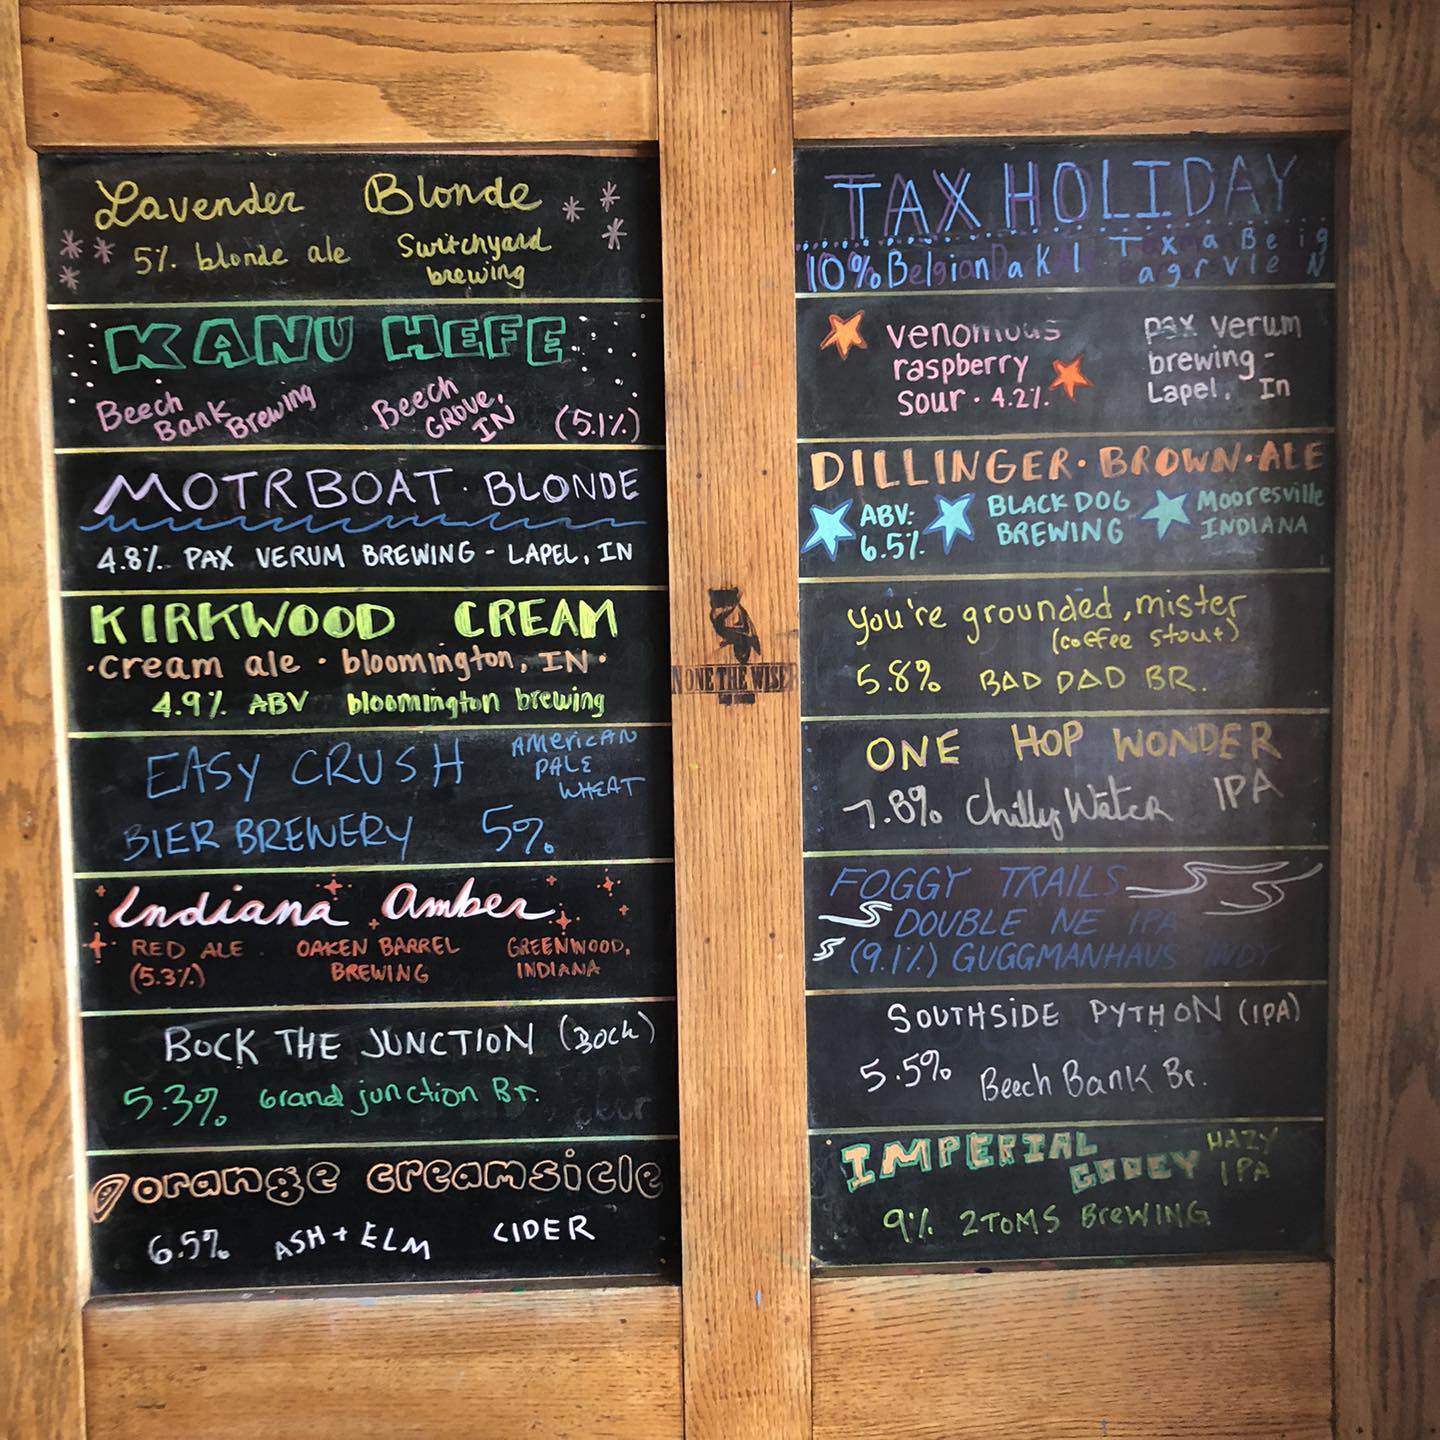 Lavender Blonde
5% blonde ale Switchyard
brewing
KANU HEFE
Beech Bank Brewing Beech Grove, IN (5.1%)
MOTRBOAT · BLONDE
4.8% PAX VERUM BREWING - LAPEL, IN
KIRKWOOD CREAM
·cream ale · bloomington, IN·
4.9% ABV bloomington brewing
EASY CRUSH AMERICAN
PALE
WHEAT
BIER BREWERY 5%
Indiana Amber
RED ALE OAKEN BARREL GREENWOOD,
(5.3%) BREWING INDIANA
BOCK THE JUNCTION (Bock)
5.3% Grand junction Br.
orange creamsicle
6.5% ASH + ELM CIDER
NONE THE WISER
TAX HOLIDAY
10% Belgian
venomous pax verum
raspberry brewing -
sour · 4.2% Lapel, In
DILLINGER · BROWN · ALE
ABV: BLACK DOG Mooresville
6.5% BREWING INDIANA
You're grounded, mister
(coffee stout)
5.8% BAD DAD BR.
ONE HOP WONDER
7.8% Chilly Water IPA
FOGGY TRAILS
DOUBLE NE IPA
(9.1%) GUGGMANHAUS INDY
SOUTHSIDE PYTHON (IPA)
5.5% Beech Bank Br.
IMPERIAL HAZY
GOOEY IPA
9% 2TOMS BREWING